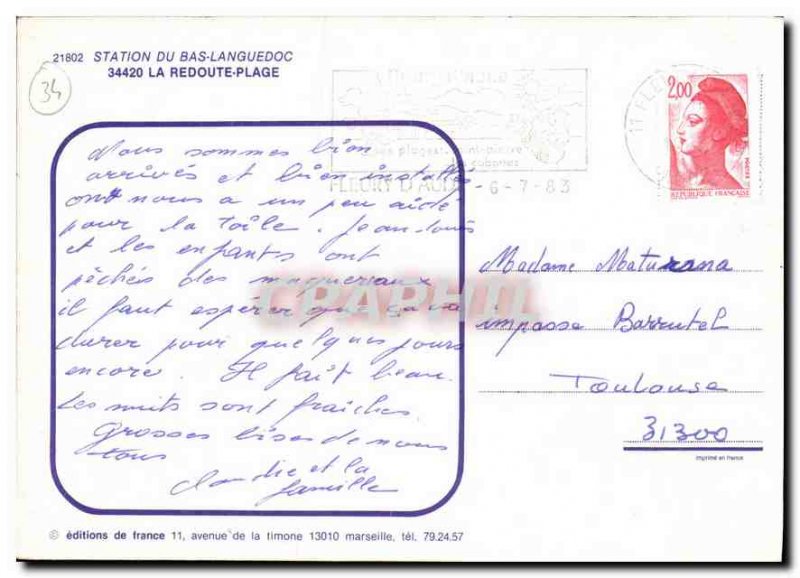 21802 STATION DU BAS-LANGUEDOC
34420 LA REDOUTE-PLAGE
34
2,00
REPUBLIQUE FRANÇAISE
POSTES
11 FLEURY
FLEURY D'AUDE -6-7-83
Nous sommes bien
arrivés et bien installés
on nous a un peu aidé
pour la toile. Jean-Louis
et les enfants ont
pêchés des maquereaux
il faut espérer que ça va
durer pour quelques jours
encore. Il fait beau.
Les nuits sont fraîches.
Grosses bises de nous
tous
Claudie et la
famille
CPAPHIL
Madame Maturana
impasse Barrutel
Toulouse
31300
imprimé en france
© éditions de france 11, avenue de la timone 13010 marseille, tél. 79.24.57